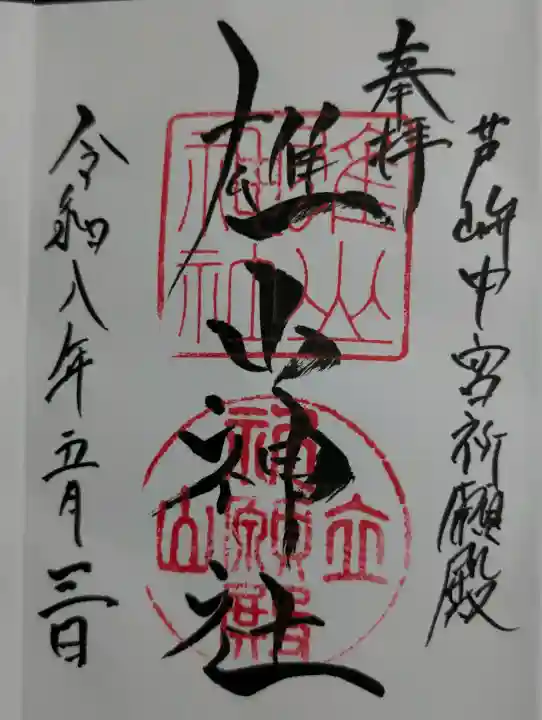 奉拝
芦峅中宮祈願殿
雄山神社
令和八年五月三日
雄山神社
立山
祈願殿